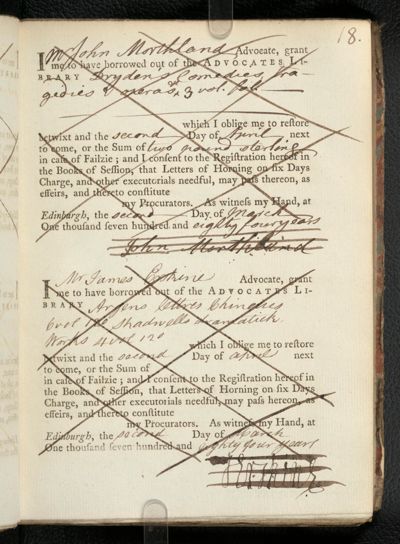 18.
I Mr John Morthland Advocate, grant
me to have borrowed out of the ADVOCATES LI-
BRARY Drydens Comedies, Tra-
gedies & operas, 3 vol. fol.
which I oblige me to reſtore
betwixt and the second Day of April next
to come, or the Sum of two pound sterling
in caſe of Failzie ; and I conſent to the Regiſtration hereof in
the Books of Seſſion, that Letters of Horning on ſix Days
Charge, and other executorials needful, may paſs thereon, as
effeirs, and thereto conſtitute
my Procurators. As witneſs my Hand, at
Edinburgh, the second Day of March
One thouſand ſeven hundred and eighty four years
John Morthland
I Mr James Erskine Advocate, grant
me to have borrowed out of the ADVOCATES LI-
BRARY Argens lettres Chinoises
6 vol 12o Shadwells dramatick
Works 4 vol 12o
which I oblige me to reſtore
betwixt and the second Day of april next
to come, or the Sum of
in caſe of Failzie ; and I conſent to the Regiſtration hereof in
the Books of Seſſion, that Letters of Horning on ſix Days
Charge, and other executorials needful, may paſs thereon, as
effeirs, and thereto conſtitute
my Procurators. As witneſs my Hand, at
Edinburgh, the second Day of March
One thouſand ſeven hundred and eighty four years